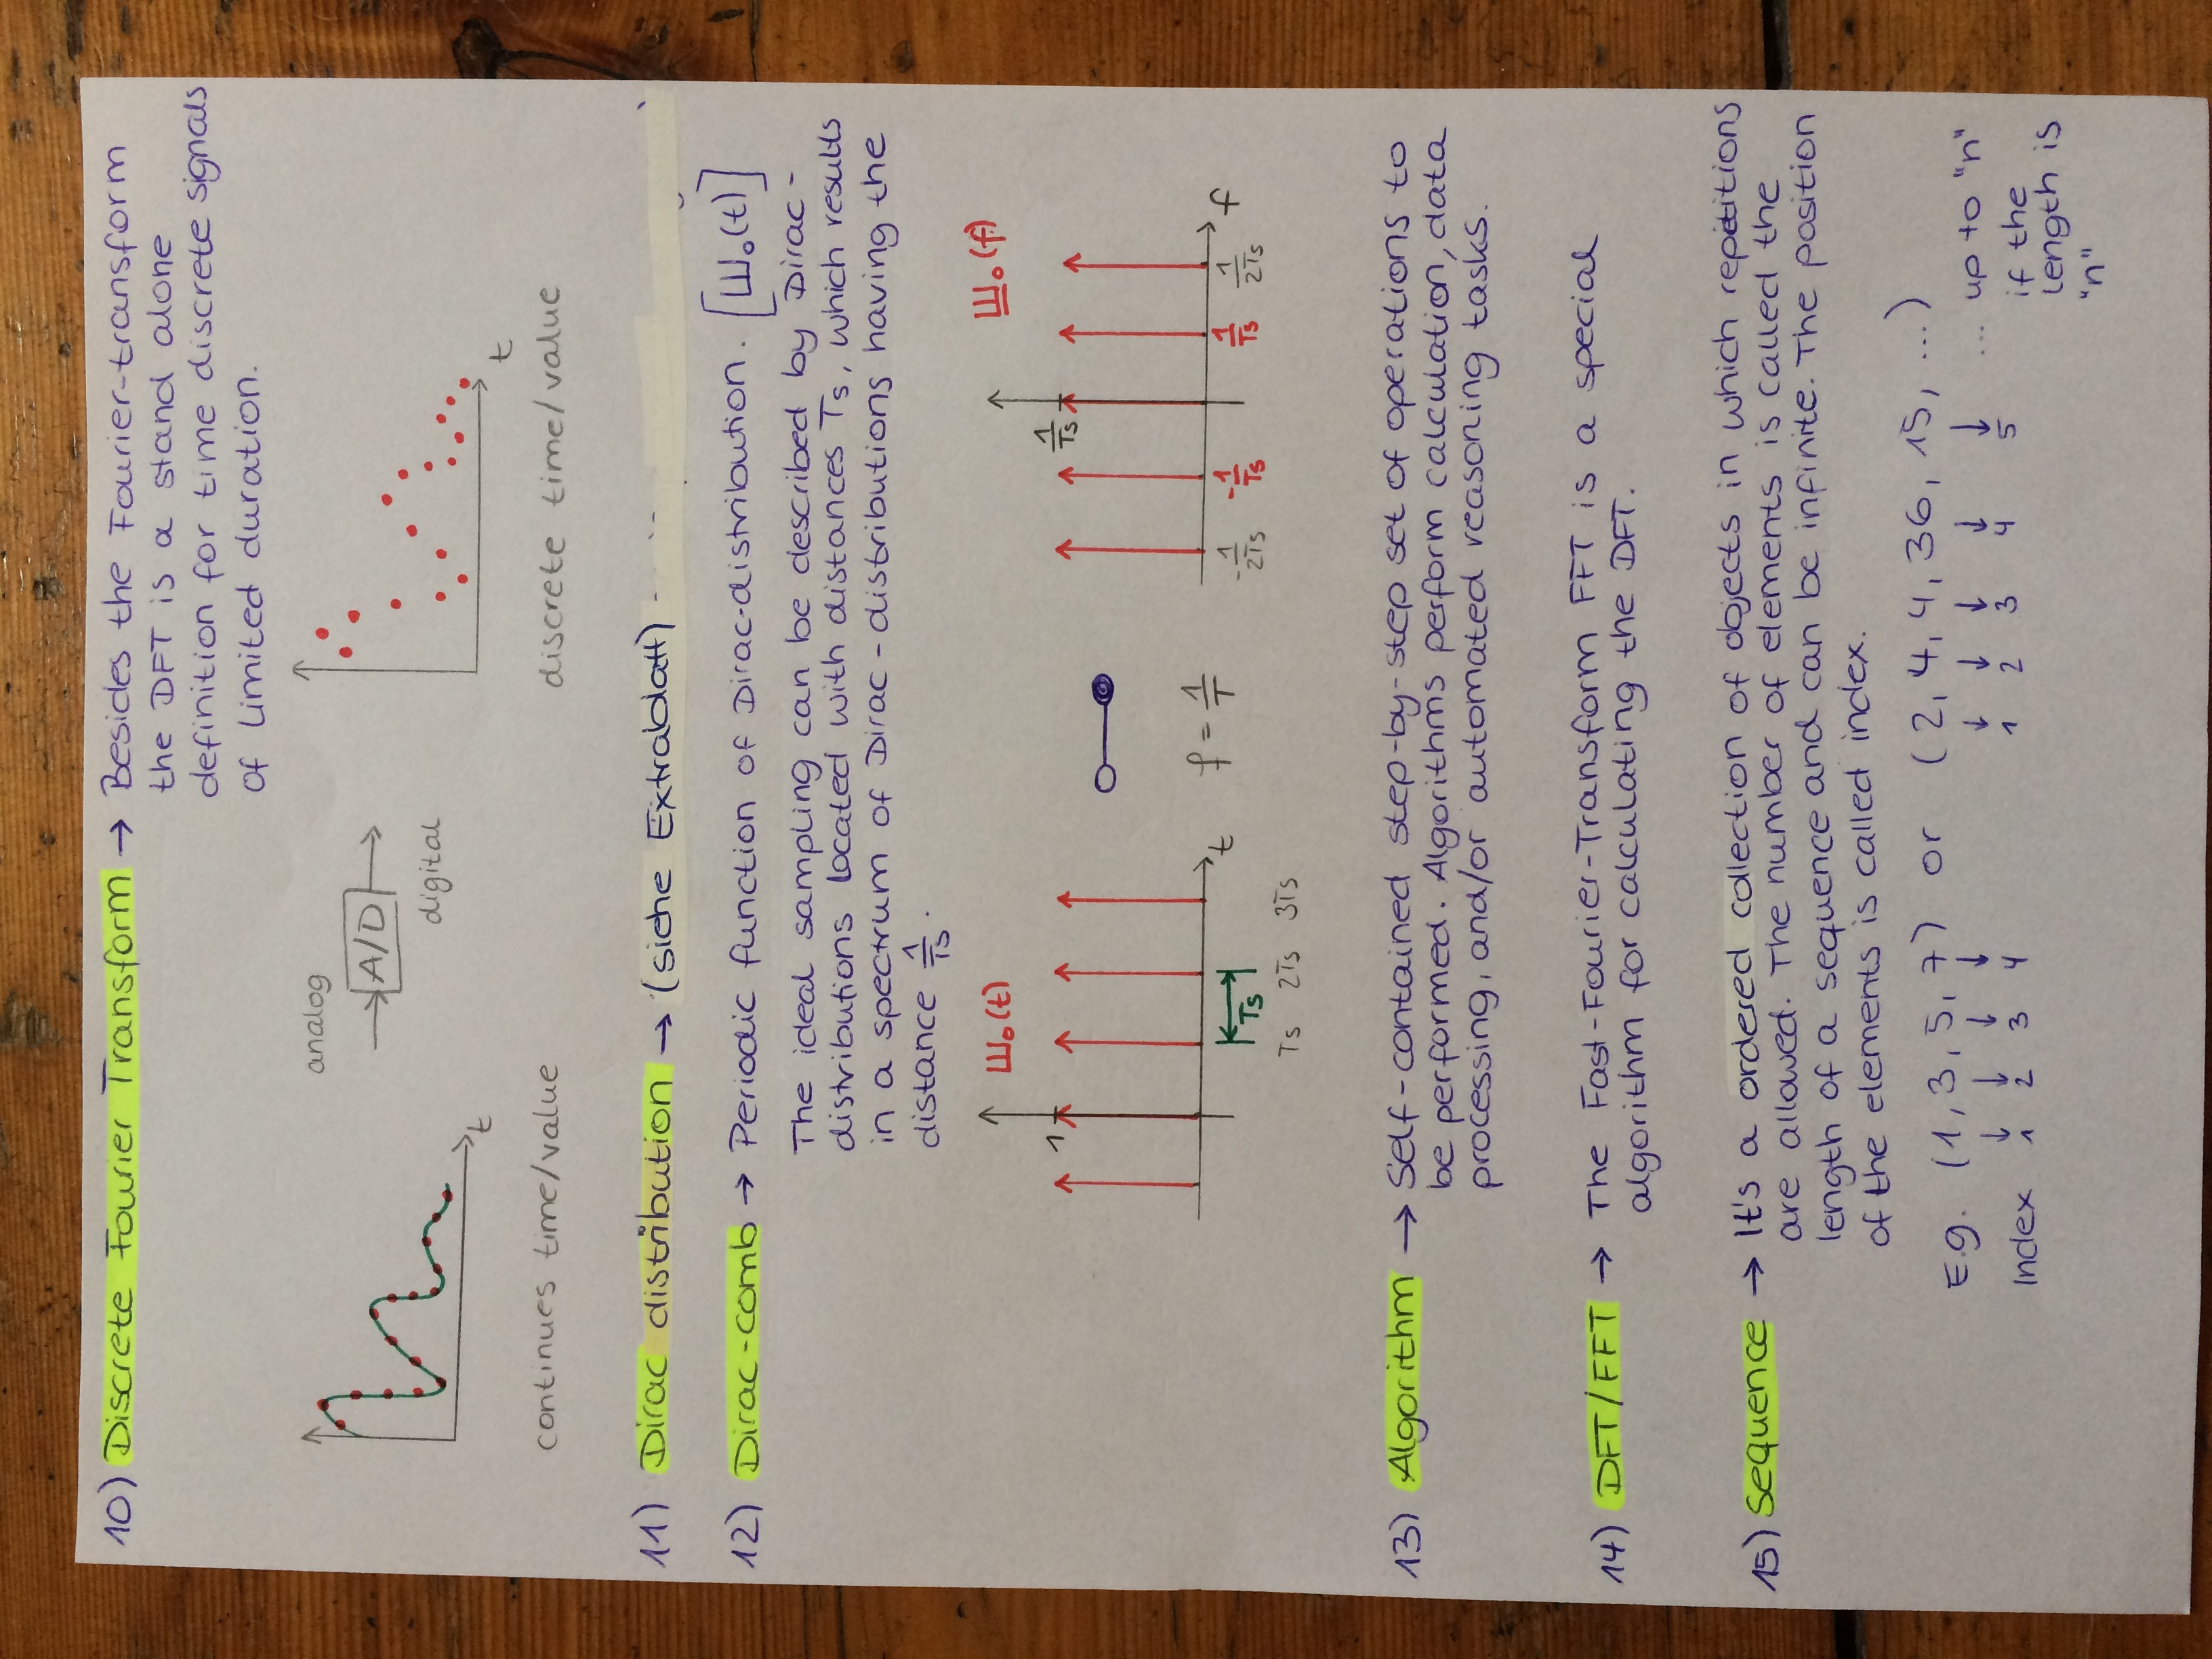 10) Discrete Fourier Transform → Besides the Fourier-transform
the DFT is a stand alone
definition for time discrete signals
of limited duration.
analog
A/D
digital
t
t
continues time/value
discrete time/value
11) Dirac distribution → (siehe Extrablatt)
12) Dirac-comb → Periodic function of Dirac-distribution. [Ш₀(t)]
The ideal sampling can be described by Dirac-
distributions located with distances Ts, which results
in a spectrum of Dirac-distributions having the
distance 1/Ts.
Ш₀(t)
Ш₀(f)
1
1/Ts
t
f = 1/T
-1/2Ts -1/Ts 1/Ts 1/2Ts f
Ts
Ts 2Ts 3Ts
13) Algorithm → Self-contained step-by-step set of operations to
be performed. Algorithms perform calculation, data
processing, and/or automated reasoning tasks.
14) DFT/FFT → The Fast-Fourier-Transform FFT is a special
algorithm for calculating the DFT.
15) Sequence → It's a ordered collection of objects in which repetitions
are allowed. The number of elements is called the
length of a sequence and can be infinite. The position
of the elements is called index.
E.g. (1, 3, 5, 7) or (2, 4, 4, 36, 15, ...)
↓ ↓ ↓ ↓ ↓ ↓ ↓ ↓ ↓ ... up to "n"
Index 1 2 3 4 1 2 3 4 5 if the
length is
"n"